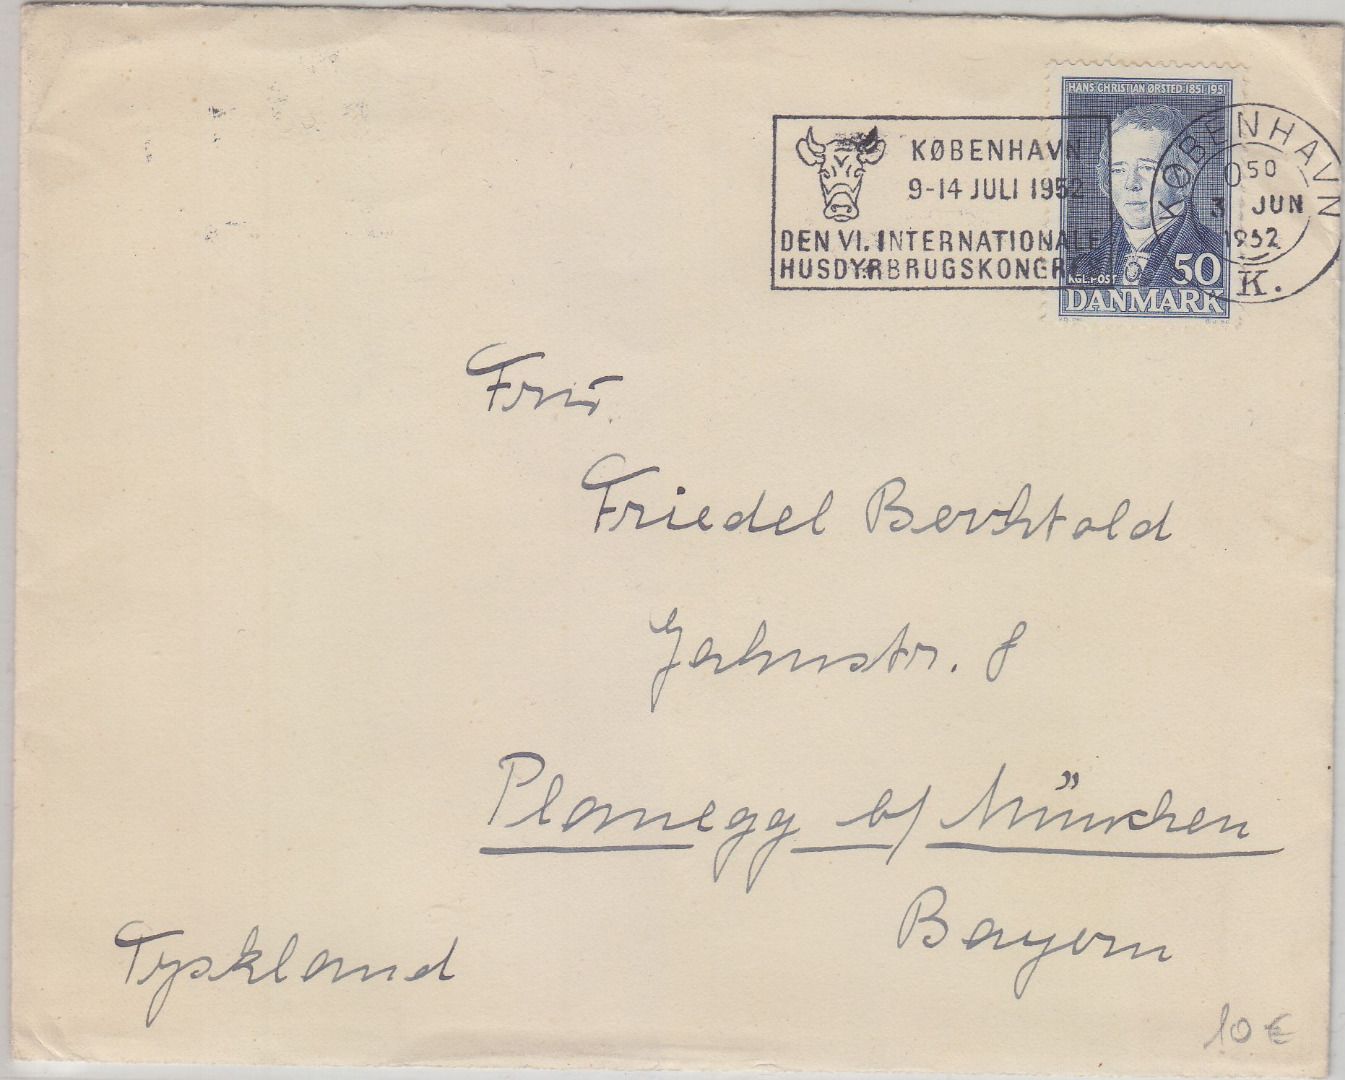 HANS CHRISTIAN ØRSTED 1851-1951
KGL. POST 50
DANMARK
KØBENHAVN
9-14 JULI 1952
DEN VI. INTERNATIONALE
HUSDYRBRUGSKONGRES
KØBENHAVN
050
3 JUN
1952
K.
Fru
Friedel Berchtold
Jahnstr. 8
Planegg b/ München
Bayern
Tyskland
10 €